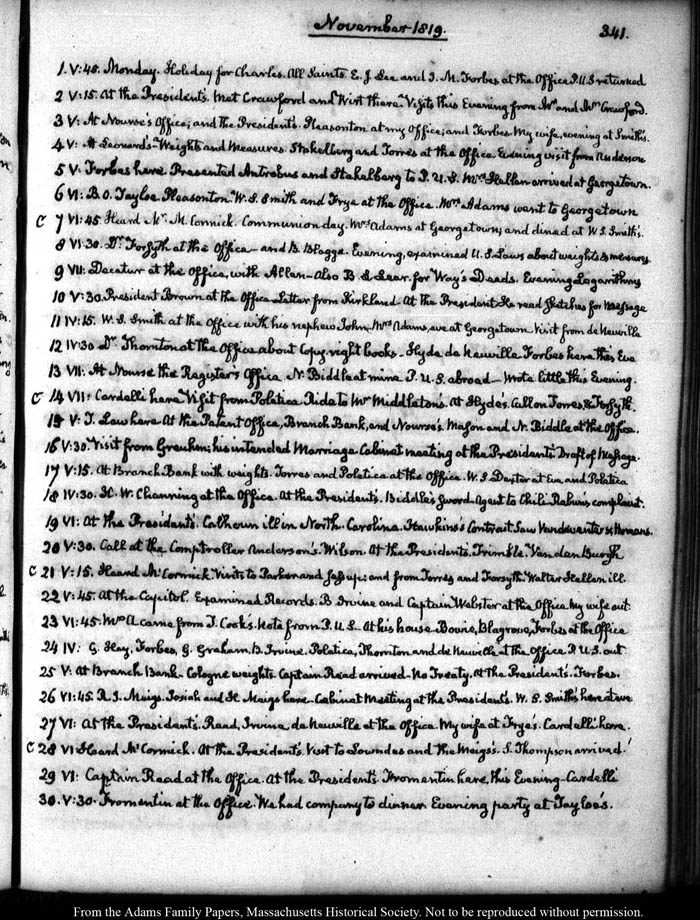 November 1819.
341.
1. V:45. Monday. Holiday for Charles. All Saints. E. J. Lee and J. M. Forbes at the Office P.U.S returned
2 V:15. At the President's. Met Crawford and Wirt there. Visits this Evening from Mr and Mrs Crawford.
3 V: At Nourse's Office; and the President's. Pleasonton at my Office; and Forbes. My wife, evening at Smith's.
4 V: At Leonard's Weights and Measures. Stakelberg and Torres at the Office. Evening visit from Anderson
5 V. Forbes here. Presented Antrobus and Stakelberg to P. U. S. Mrs Hellen arrived at Georgetown.
6 VI: B. O. Tayloe. Pleasonton. W. S. Smith and Frye at the Office. Mrs Adams went to Georgetown
C 7 VI:45 Heard Mr McCormick. Communion day. Mrs Adams at Georgetown; and dined at W. S. Smith's.
8 VI:30. Dr Forsyth at the Office and B. Blagge. Evening, examined U.S. Laws about weights & measures
9 VII: Decatur at the Office, with Allen - Also B. & Lear. for Way's Deeds. Evening Logarithms
10 V:30. President Brown at the Office Letter from Kirkland. At the President's He read Sketches for Message
11 IV:15. W. S. Smith at the Office with his nephew John. Mrs Adams, eve at Georgetown. Visit from de Neuville
12 IV:30 Dr Thornton at the Office about Copy right books - Hyde de Neuville Forbes here this Eve
13 VII: At Nourse the Register's Office N. Biddle at mine P. U. S. abroad - Wrote little this Evening.
C 14 VII: Cardelli here Visit from Politica Ride to Mr Middleton's. At Hyde's. Call on Torres, & Forsyth.
15 V: T. Law here. At the Patent Office, Branch Bank, and Nourse's Mason and N. Biddle at the Office.
16 V:30 Visit from Greuhm; his intended Marriage. Cabinet meeting at the President's Draft of Message.
17 V:15. At Branch Bank with weights. Torres and Politica at the Office. W. S Dexter at Eve and Politica
18 IV:30. H. W. Channing at the Office. At the President's. Biddle's Sword. Agent to Chili Rabun's complaint.
19 VI: At the President's. Calhoun ill in North. Carolina. Hawkins's Contract. Saw Vandeventer & Homans.
20 V:30. Call at the Comptroller Anderson's. Wilson. At the President's. Trimble Vanden Burgh
C 21 V:15. Heard McCormick Visits to Parker and Jessup; and from Torres and Forsyth. Walter Hellen ill.
22 V:45. At the Capitol. Examined Records. B Irvine and Captain Webster at the Office. My wife out
23 VI:45. Mrs A came from J. Cook's. Note from P. U. S. At his house Bowie, Blagrove, Forbes at the Office
24 IV: G. Hay, Forbes, G. Graham, B. Irvine. Politica, Thornton and de Neuville at the Office P. U.S. out
25 V: At Branch Bank. Cologne weights. Captain Read arrived. No Treaty. At the President's. Forbes.
26 VI:45. R. J. Meigs. Josiah and H. Meigs here. Cabinet Meeting at the President's. W. S. Smith's here at eve
27 VI: At the President's. Read, Irvine, de Neuville at the Office. My wife at Frye's. Cardelli here.
C 28 VI Heard McCormick. At the President's. Visit to Lowndes and the Meigs's. S. Thompson arrived.
29 VI: Captain Read at the Office. At the President's. Fromentin here, this Evening - Cardelli
30. V:30. Fromentin at the Office. We had company to dinner. Evening party at Tayloe's.
From the Adams Family Papers, Massachusetts Historical Society. Not to be reproduced without permission.